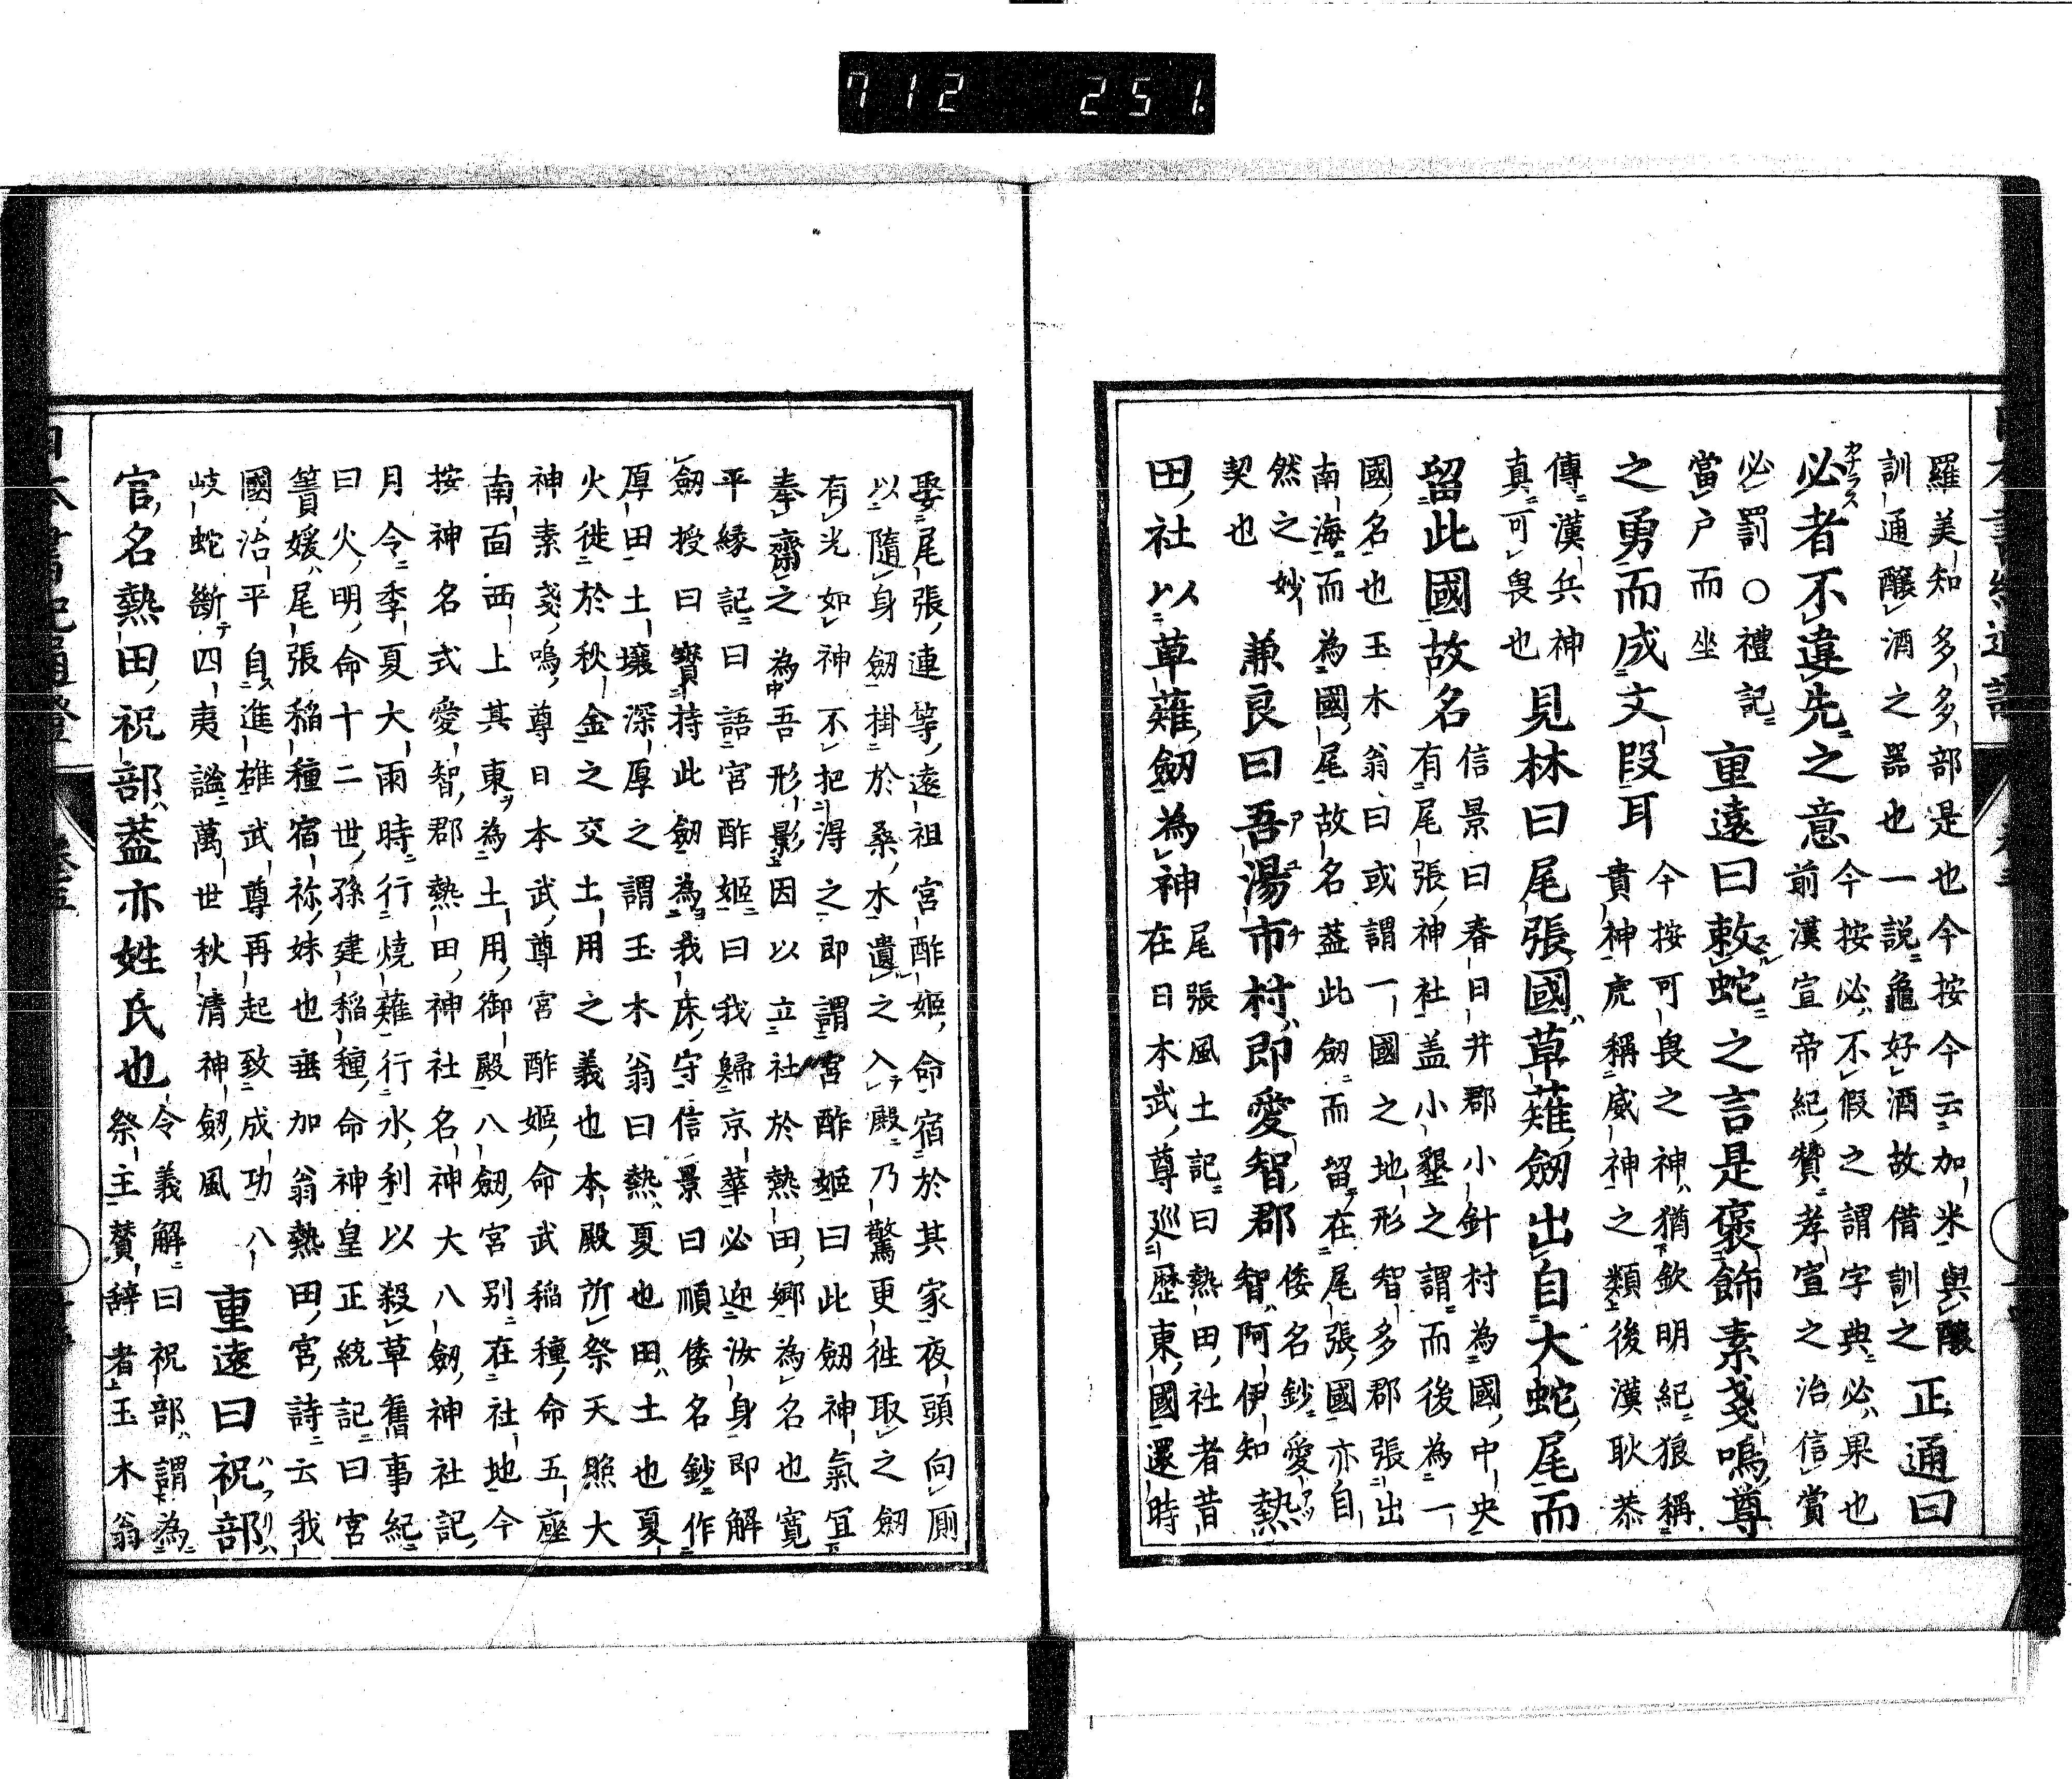 712 251
羅美知多多部是也今按今云加米與醸
訓通醸酒之器也一説龜好酒故借訓之
正通曰
必者不違先之意
今按必不假之謂字典必果也
前漢宣帝紀贊孝宣之治信賞
必罰○禮記
當户而坐
重遠曰敕蛇之言是褒飾素戔嗚尊
之勇而成文段耳
今按可畏之神猶欽明紀狼稱
貴神虎稱威神之類後漢耿恭
傳漢兵神
真可畏也
見林曰尾張國草薙劔出自大蛇尾而
留此國故名
信景曰春日井郡小針村為國中央
有尾張神社盖小墾之謂而後為一
國名也玉木翁曰或謂一國之地形智多郡張出
南海而為國尾故名盖此劔而留在尾張國亦自
然之妙
契也
兼良曰吾湯市村即愛智郡
倭名鈔愛
智阿伊知
熱
田社以草薙劔為神
尾張風土記曰熱田社者昔
在日本武尊巡歴東國還時
娶尾張連等遠祖宮酢姬命宿於其家夜頭向厠
以隨身劔掛於桑木遺之入殿乃驚更徃取之劔
有光如神不把得之即謂宮酢姬曰此劔神氣宜
奉齋之為吾形影因以立社於熱田郷為名也寛
平縁記曰語宮酢姬曰我歸京華必迎汝身即解
劔授曰寶持此劔為我床守信景曰順倭名鈔作
厚田土壤深厚之謂玉木翁曰熱夏也田土也夏
火徙於秋金之交土用之義也本殿所祭天照大
神素戔嗚尊日本武尊宮酢姬命武稲種命五座
南面西上其東為土用御殿八劔宮別在社地今
按神名式愛智郡熱田神社名神大八劔神社記
月令季夏大雨時行燒薙行水利以殺草舊事紀
曰火明命十二世孫建稲種命神皇正統記曰宮
簀媛尾張稲種宿祢妹也垂加翁熱田宮詩云我
國治平自進雄武尊再起致成功八
岐蛇斷四夷謐萬世秋清神劔風
重遠曰祝部
官名熱田祝部盖亦姓氏也
令義解曰祝部謂為
祭主贊辭者玉木翁